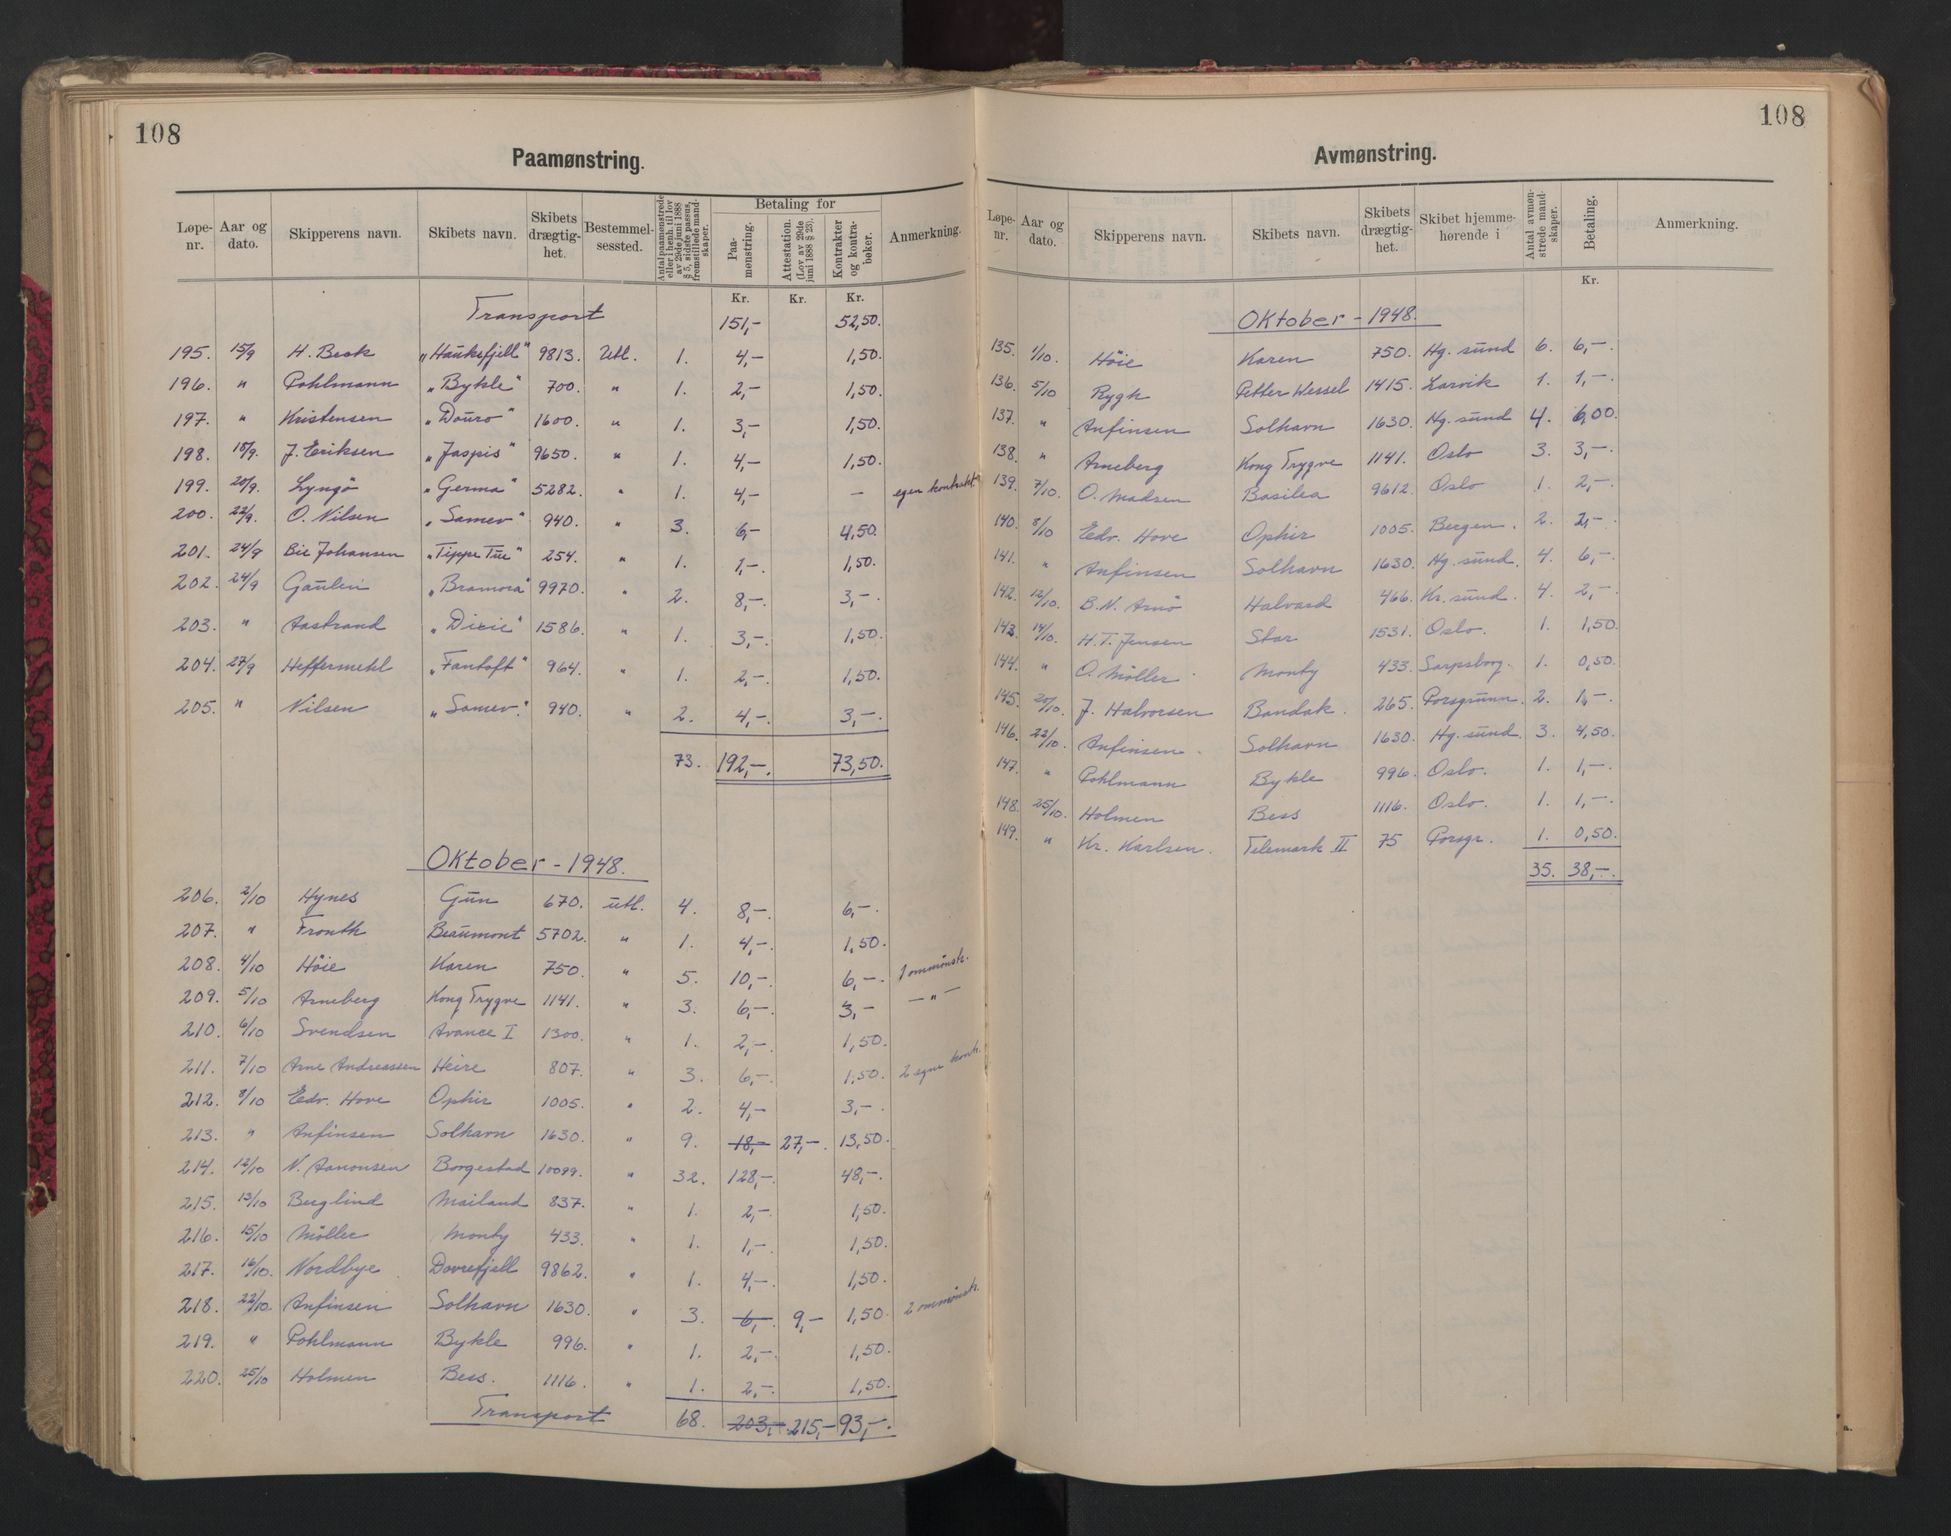 108
Paamønstring.
Løpe-nr. | Aar og dato. | Skipperens navn. | Skibets navn. | Skibets drægtig-het. | Bestemmel-sessted. | Antal paamønstrede eller i henh. til lov av 29de juni 1888 § 5, sidste passus, fremstillede mand-skaper. | Betaling for | Paa-mønstring. | Attestation. (Lov av 29de juni 1888 § 23). | Kontrakter og kontra-bøker. | Anmerkning.
Kr. | Kr. | Kr.
Transport | 151,- | 52,50.
195. | 15/9 | H. Besk | „Hauksfjell" | 9813. | Utl. | 1. | 4,- | 1,50.
196. | " | Pohlmann | „Bykle" | 700. | " | 1. | 2,- | 1,50.
197. | " | Kristensen | „Douro" | 1600. | " | 1. | 3,- | 1,50.
198. | 18/9. | J. Eriksen | „Jaspis" | 9650. | " | 1. | 4,- | 1,50.
199. | 20/9. | Lyngö | „Germa" | 5282. | " | 1. | 4,- | - | egen kontrakt.
200. | 22/9. | O. Nilsen | „Samev" | 940. | " | 3. | 6,- | 4,50.
201. | 24/9 | Bie Johansen | „Tippe Tue" | 254. | " | 1. | 1,-. | 1,50.
202. | 24/9 | Gaulin | „Bramora" | 9970. | " | 2. | 8,-. | 3,-.
203. | " | Aastrand | „Dixie" | 1586. | " | 1. | 3,-. | 1,50.
204. | 27/9 | Heffermehl | „Fantoft" | 964. | " | 1. | 2,-. | 1,50.
205. | " | Nilsen | „Samev." | 940. | " | 2. | 4,-. | 3,-.
73. | 192,-. | 73,50.
Oktober - 1948.
206. | 2/10 | Hynes | Gun | 670. | utl. | 4. | 8,-. | 6,-.
207. | " | Fronth | Beaumont | 5702. | " | 1. | 4,-. | 1,50.
208. | 4/10 | Höie | Karen | 750. | " | 5. | 10,-. | 6,-. | 1 ommönstr.
209. | 5/10 | Arneberg | Kong Trygve | 1141. | " | 3. | 6,-. | 3,- | - " -
210. | 6/10 | Svendsen | Avance I | 1300. | " | 1. | 2,-. | 1,50.
211. | 7/10 | Arne Andreassen | Heire | 807. | " | 3. | 6,-. | 1,50. | 2 egne kontr.
212. | 8/10 | Edv. Hove | Ophir | 1005. | " | 2. | 4,- | 3,-.
213. | " | Anfinsen | Solhavn | 1630. | " | 9. | 18,- | 27,-. | 13,50.
214. | 12/10 | N. Aanonsen | Borgestad | 10099. | " | 32. | 128,-. | 48,-.
215. | 13/10 | Berglind | Mailand | 837. | " | 1. | 2,-. | 1,50.
216. | 15/10 | Möller | Monby | 433. | " | 1. | 1,-. | 1,50.
217. | 16/10. | Nordbye | Dovrefjell | 9862. | " | 1. | 4,-. | 1,50.
218. | 22/10. | Anfinsen | Solhavn | 1630. | " | 3. | 6,- | 9,- | 1,50. | 2 ommönstr.
219. | " | Pohlmann | Bykle | 996. | " | 1. | 2,-. | 1,50.
220. | 25/10 | Holmen | Bess. | 1116. | " | 1. | 2,-. | 1,50.
Transport | 68. | 203,- | 215,- | 93,-.
108
Avmønstring.
Løpe-nr. | Aar og dato. | Skipperens navn. | Skibets navn. | Skibets drægtig-het. | Skibet hjemme-hørende i | Antal avmøn-strede mand-skaper. | Betaling. | Anmerkning.
Kr.
Oktober - 1948.
135. | 1/10. | Höie | Karen | 750. | Hg. sund | 6. | 6,-.
136. | 5/10 | Rygh | Petter Wessel | 1415. | Larvik | 1. | 1,-.
137. | " | Anfinsen | Solhavn | 1630. | Hg. sund | 4. | 6,00.
138. | " | Arneberg | Kong Trygve | 1141. | Oslo | 3. | 3,-.
139. | 7/10. | O. Madsen | Basilea | 9612. | Oslo | 1. | 2,-.
140. | 8/10 | Edv. Hove | Ophir | 1005. | Bergen. | 2. | 2,-
141. | " | Anfinsen | Solhavn | 1630. | Hg. sund. | 4. | 6,-.
142. | 12/10. | B. N. Arnö | Halvard | 466. | Kr. sund. | 4. | 2,-.
143. | 14/10. | H. T. Jensen | Star | 1531. | Oslo. | 1. | 1,50.
144. | " | O. Möller. | Monby | 433. | Sarpsborg. | 1. | 0,50.
145. | 20/10. | J. Halvorsen | Bandak. | 265. | Porsgrunn. | 2. | 1,-.
146. | 22/10. | Anfinsen. | Solhavn | 1630. | Hg. sund. | 3. | 4,50.
147. | " | Pohlmann | Bykle | 996. | Oslo. | 1. | 1,-.
148. | 25/10. | Holmen | Bess | 1116. | Oslo. | 1. | 1,-.
149. | " | Kr. Karlsen. | Telemark II | 75 | Porsgr. | 1. | 0,50.
35. | 38,-.